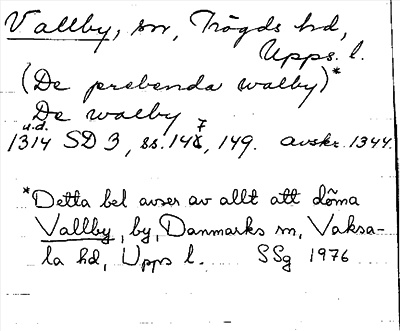 Vallby, sn, Trögds hd,
Upps. l.
(De prebenda walby)*
De walby
u.d.
1314 SD 3, ss. 147, 149. avskr. 1344.
*Detta bel avser av allt att döma
Vallby, by, Danmarks sn, Vaksa-
la hd, Upps l. SSg 1976